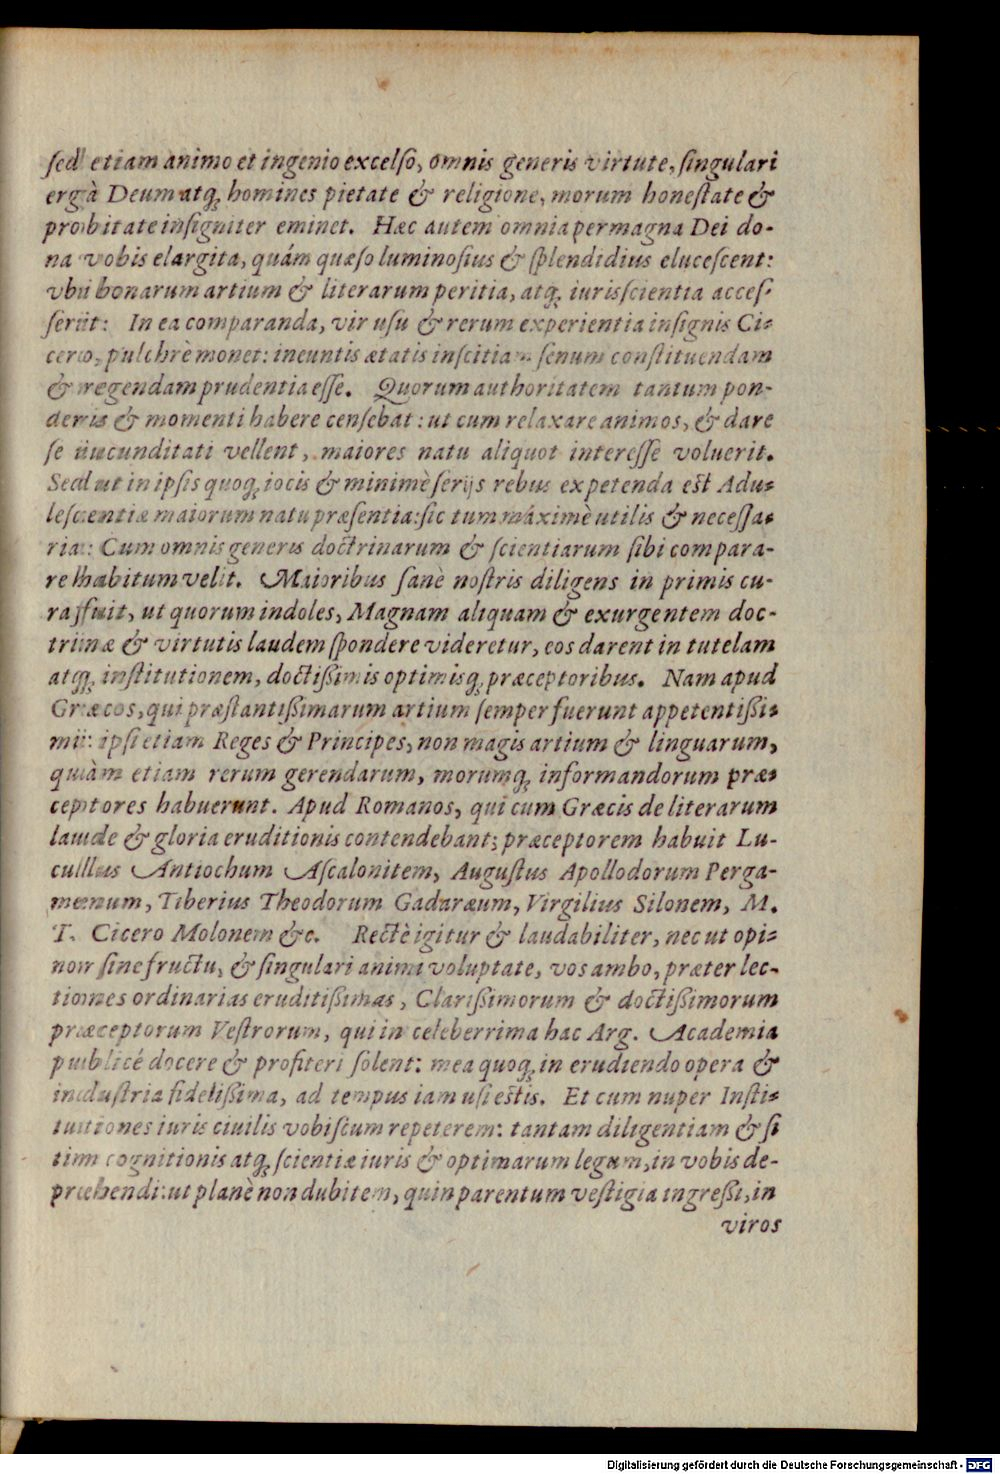 ſed etiam animo et ingenio excelſo, omnis generis virtute, ſingulari
ergà Deum atq́; homines pietate & religione, morum honeſtate &
probitate inſigniter eminet. Hæc autem omnia permagna Dei do-
na vobis elargita, quám quæſo luminoſius & ſplendidius eluceſcent:
vbi bonarum artium & literarum peritia, atq́; iurisſcientia acceſ-
ſerit: In ea comparanda, vir uſu & rerum experientia inſignis Ci-
cero, pulchrè monet: ineuntis ætatis inſcitiam ſenum conſtituendam
& regendam prudentia eſſe. Quorum authoritatem tantum pon-
deris & momenti habere cenſebat: ut cum relaxare animos, & dare
ſe iucunditati vellent, maiores natu aliquot intereſſe voluerit.
Sed ut in ipſis quoq́; iocis & minimè ſerijs rebus expetenda est Adu-
leſcentiæ maiorum natu præſentia: ſic tum máximè utilis & neceſſa-
ria: Cum omnis generis doctrinarum & ſcientiarum ſibi compara-
re habitum velit. Maioribus ſanè noſtris diligens in primis cu-
ra fuit, ut quorum indoles, Magnam aliquam & exurgentem doc-
trinæ & virtutis laudem ſpondere videretur, eos darent in tutelam
atq́; inſtitutionem, doctißimis optimisq́; præceptoribus. Nam apud
Græcos, qui præſtantißimarum artium ſemper fuerunt appetentißi-
mi: ipſi etiam Reges & Principes, non magis artium & linguarum,
quàm etiam rerum gerendarum, morumq́; informandorum præ-
ceptores habuerunt. Apud Romanos, qui cum Græcis de literarum
laude & gloria eruditionis contendebant; præceptorem habuit Lu-
cullus Antiochum Aſcalonitem, Auguſtus Apollodorum Perga-
menum, Tiberius Theodorum Gadaræum, Virgilius Silonem, M.
T. Cicero Molonem &c. Rectè igitur & laudabiliter, nec ut opi-
nor ſine fructu, & ſingulari animi voluptate, vos ambo, præter lec-
tiones ordinarias eruditißimas, Clarißimorum & doctißimorum
præceptorum Veſtrorum, qui in celeberrima hac Arg. Academia
publicé docere & profiteri ſolent: mea quoq́; in erudiendo opera &
induſtria fidelißima, ad tempus iam uſi estis. Et cum nuper Inſti-
tutiones iuris ciuilis vobiſcum repeterem: tantam diligentiam & ſi
tim cognitionis atq́; ſcientiæ iuris & optimarum legum, in vobis de-
prehendi: ut planè non dubitem, quin parentum veſtigia ingreßi, in
viros
Digitalisierung gefördert durch die Deutsche Forschungsgemeinschaft - DFG